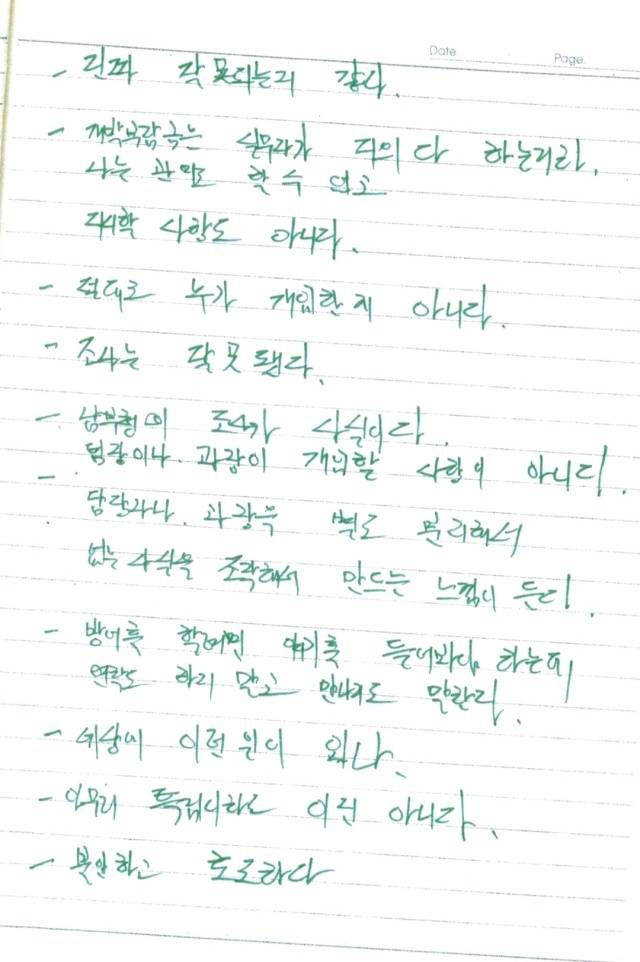 Date. Page.
- 진짜 잘못되는거 같다.
- 개발부담금는 실무자가 거의 다 하는거라.
나는 관여도 할 수 없고
재시할 사항도 아니다.
- 절대로 누가 개입한지 아니다.
- 조사는 잘못 됐다.
- 남부청의 조사가 사실이다.
- 팀장이나. 과장이 개입할 사항이 아니다.
담당자나. 과장을 별로 분리해서
없는 사실을 조작해서 만드는 느낌이 든다.
- 방어를 할려면 얘기를 들어봐야 하는데
연락도 하지 말고 만나지도 말란다.
- 세상에 이런일이 있나.
- 아무리 특검이라도 이건 아니다.
- 불안하고 초조하다